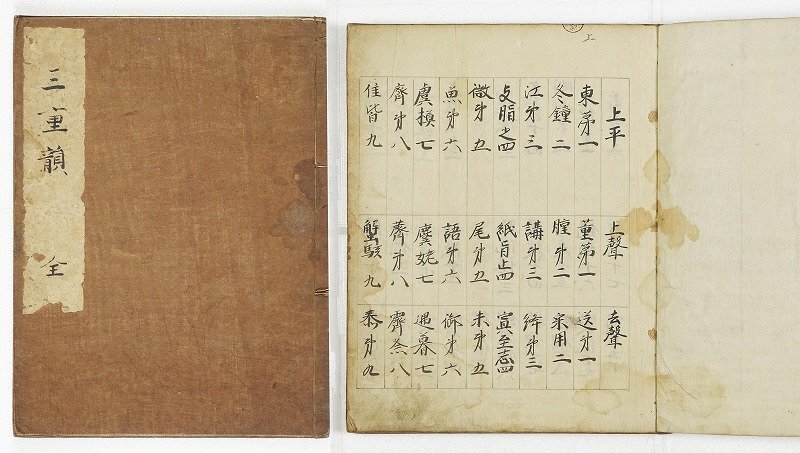 三重韻 全
上平 上聲 去聲
東第一 董第一 送第一
冬鐘二 腫第二 宋用二
江第三 講第三 絳第三
支脂之四 紙旨止四 寘至志四
微第五 尾第五 未第五
魚第六 語第六 御第六
虞模七 麌姥七 遇暮七
齊第八 薺第八 霽祭八
佳皆九 蟹駭九 泰第九